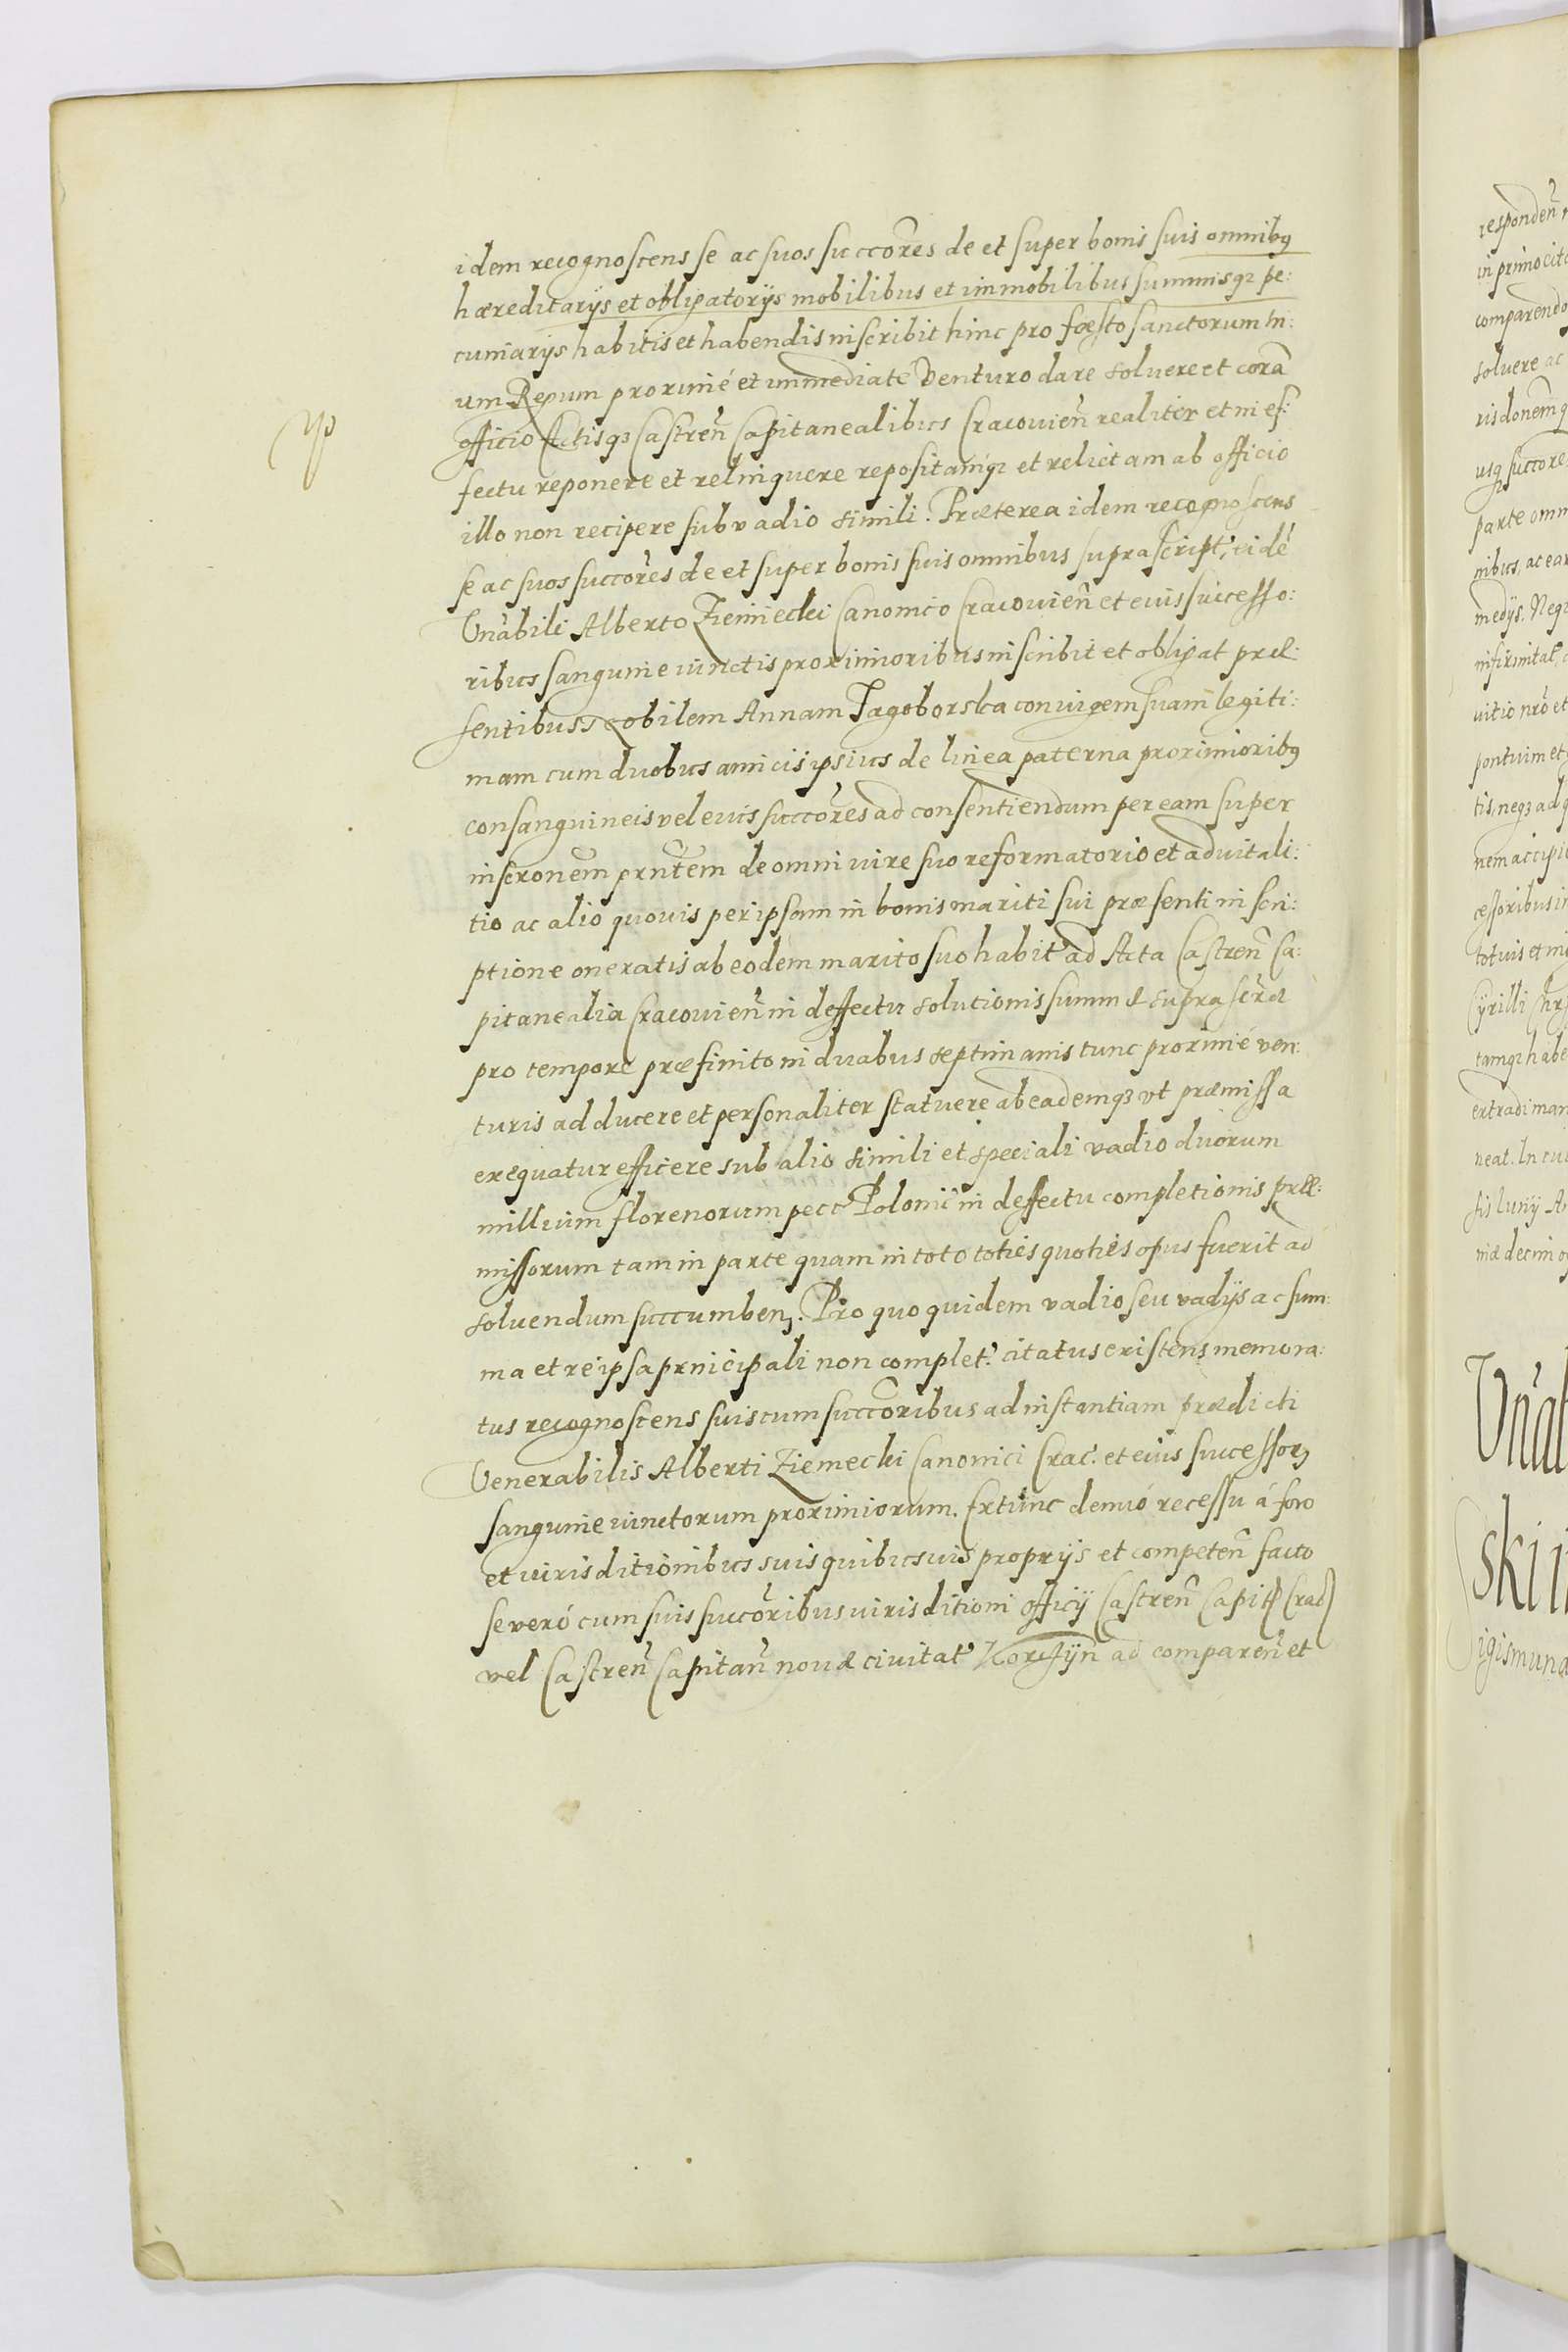 idem recognoscens se ac suos succõres de et super bonis suis omnibq
hæreditarijs et obligatorijs mobilibus et immobilibus summisq₃ pe:
cuniarijs habitis et habendis inscribit hinc pro fæsto sanctorum tri:
um Regum proximé et immediate venturo dare soluere et corã
officio Actisq₃ Castren̄ Capitanealibus Cracouien̄ realiter et in ef:
fectu reponere et relinquere repositamq₃ et relictam ab officio
illo non recipere sub vadio simili. Præterea idem recognoscens
se ac suos succõres de et super bonis suis omnibus suprascript, eidẽ
Vnãbili Alberto Ziemiecki Canonico Cracouien̄ et eius successo:
ribus sanguine iunctis proximioribus inscribit et obligat præ:
sentibus Nobilem Annam Jagoborska coniugem suam legiti:
mam cum duobus amicis ipsius de linea paterna proximioribq
consanguineis vel eius succõres ad consentiendum per eam super
inscronẽm prñtem de omni iure suo reformatorio et aduitali:
tio ac alio quouis per ipsam in bonis mariti sui præsenti in scri:
ptione oneratis ab eodem marito suo habit' ad Acta Castren̄ Ca:
pitanealia Cracouien̄ in deffectu solutionis summæ suprascr̃æ
pro tempore præfinito in duabus septimanis tunc proximé ven:
turis adducere et personaliter statuere ab eademq₃ vt præmissa
exequatur efficere sub alio simili et speciali vadio duorum
millium florenorum pecc' Polonic' in deffectu completionis præ:
missorum tam in parte quam in toto toties quoties opus fuerit ad
soluendum succumben₃. Pro quo quidem vadio seu vadijs ac sum:
ma et re ipsa principali non complet' citatus existens memora:
tus recognoscens suis cum succõribus ad instantiam prædicti
Venerabilis Alberti Ziemecki Canonici Crac. et eius successor₃
sanguine iunctorum proximiorum. Extunc demió recessu á foro
et iurisditionibus suis quibusuis proprijs et competen̄ facto
se veró cum suis succõribus iurisditioni officij Castren̄ Capit Crac
vel Castren̄ Capitan̄ nouæ ciuitat' Korcżyn̄ ad comparen̄ et